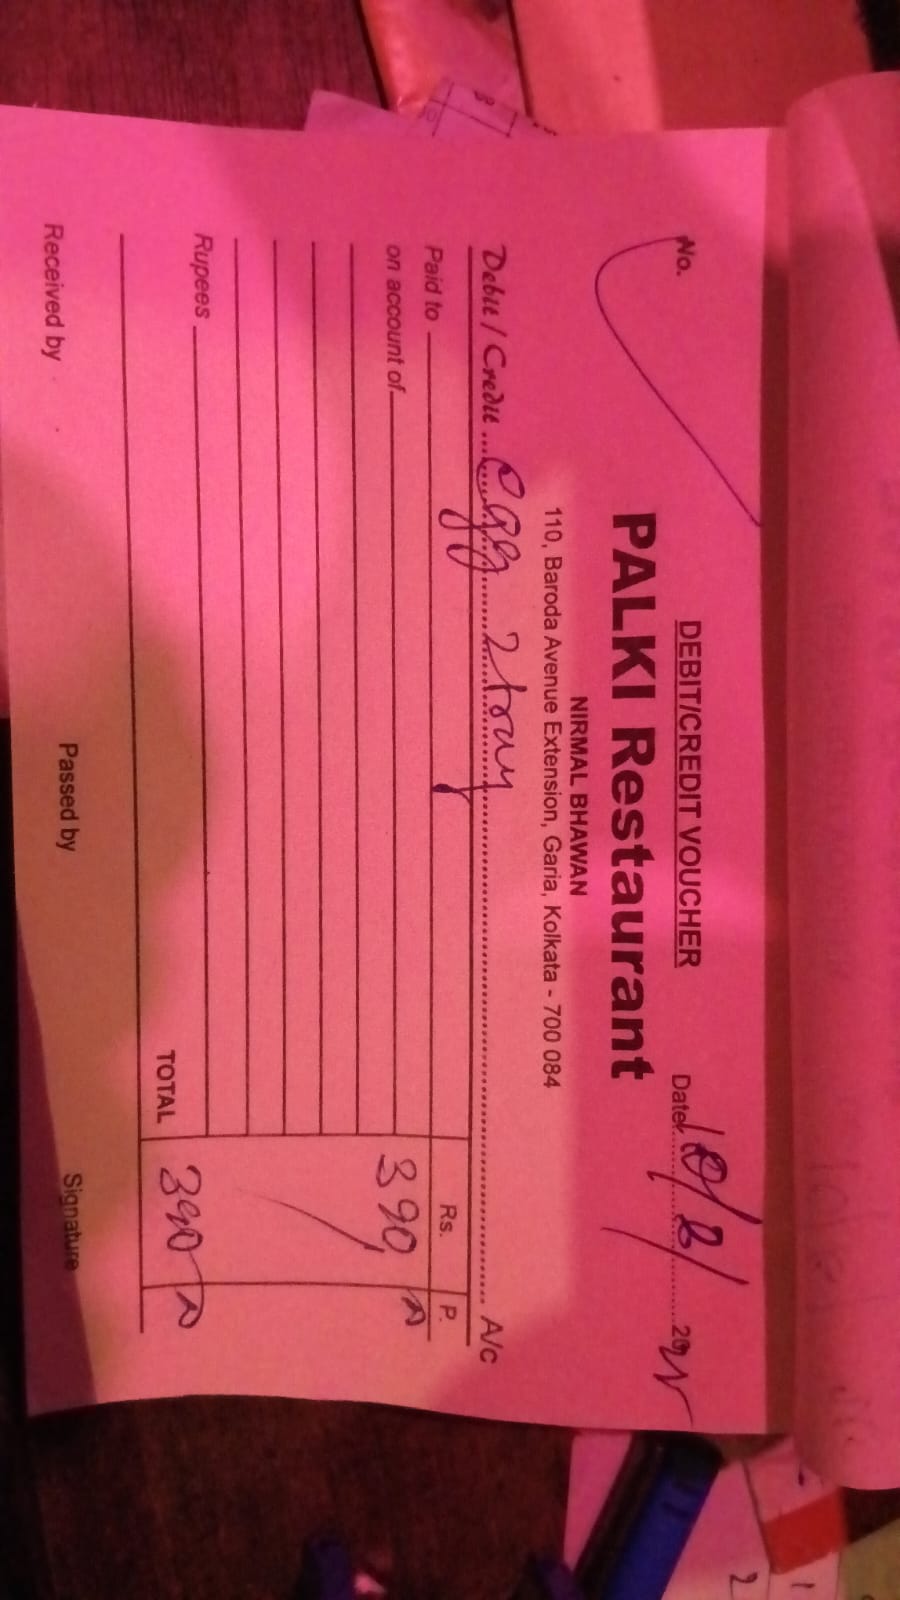 DEBIT/CREDIT VOUCHER
No.
Date 10/8/
PALKI Restaurant
NIRMAL BHAWAN
110, Baroda Avenue Extension, Garia, Kolkata - 700 084
Debit / Credit Egg 2 tray A/c
Paid to
Rs. P.
on account of 390
Rupees
TOTAL 390
Received by Passed by Signature